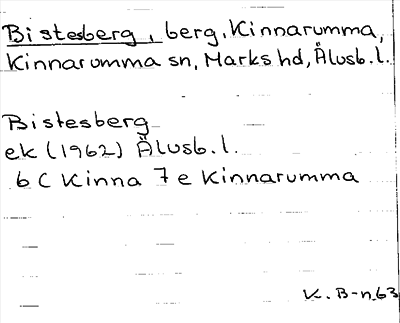 Bistesberg, berg, Kinnarumma,
Kinnarumma sn, Marks hd, Älvsb. l.
Bistesberg
ek (1962) Älvsb. l.
6 C Kinna 7 e Kinnarumma
K. B-n 63